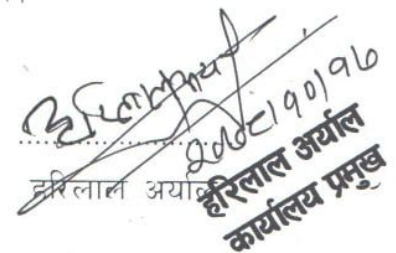 २०७८।१०।१७
हरिलाल अर्याल
हरिलाल अर्याल
कार्यालय प्रमुख